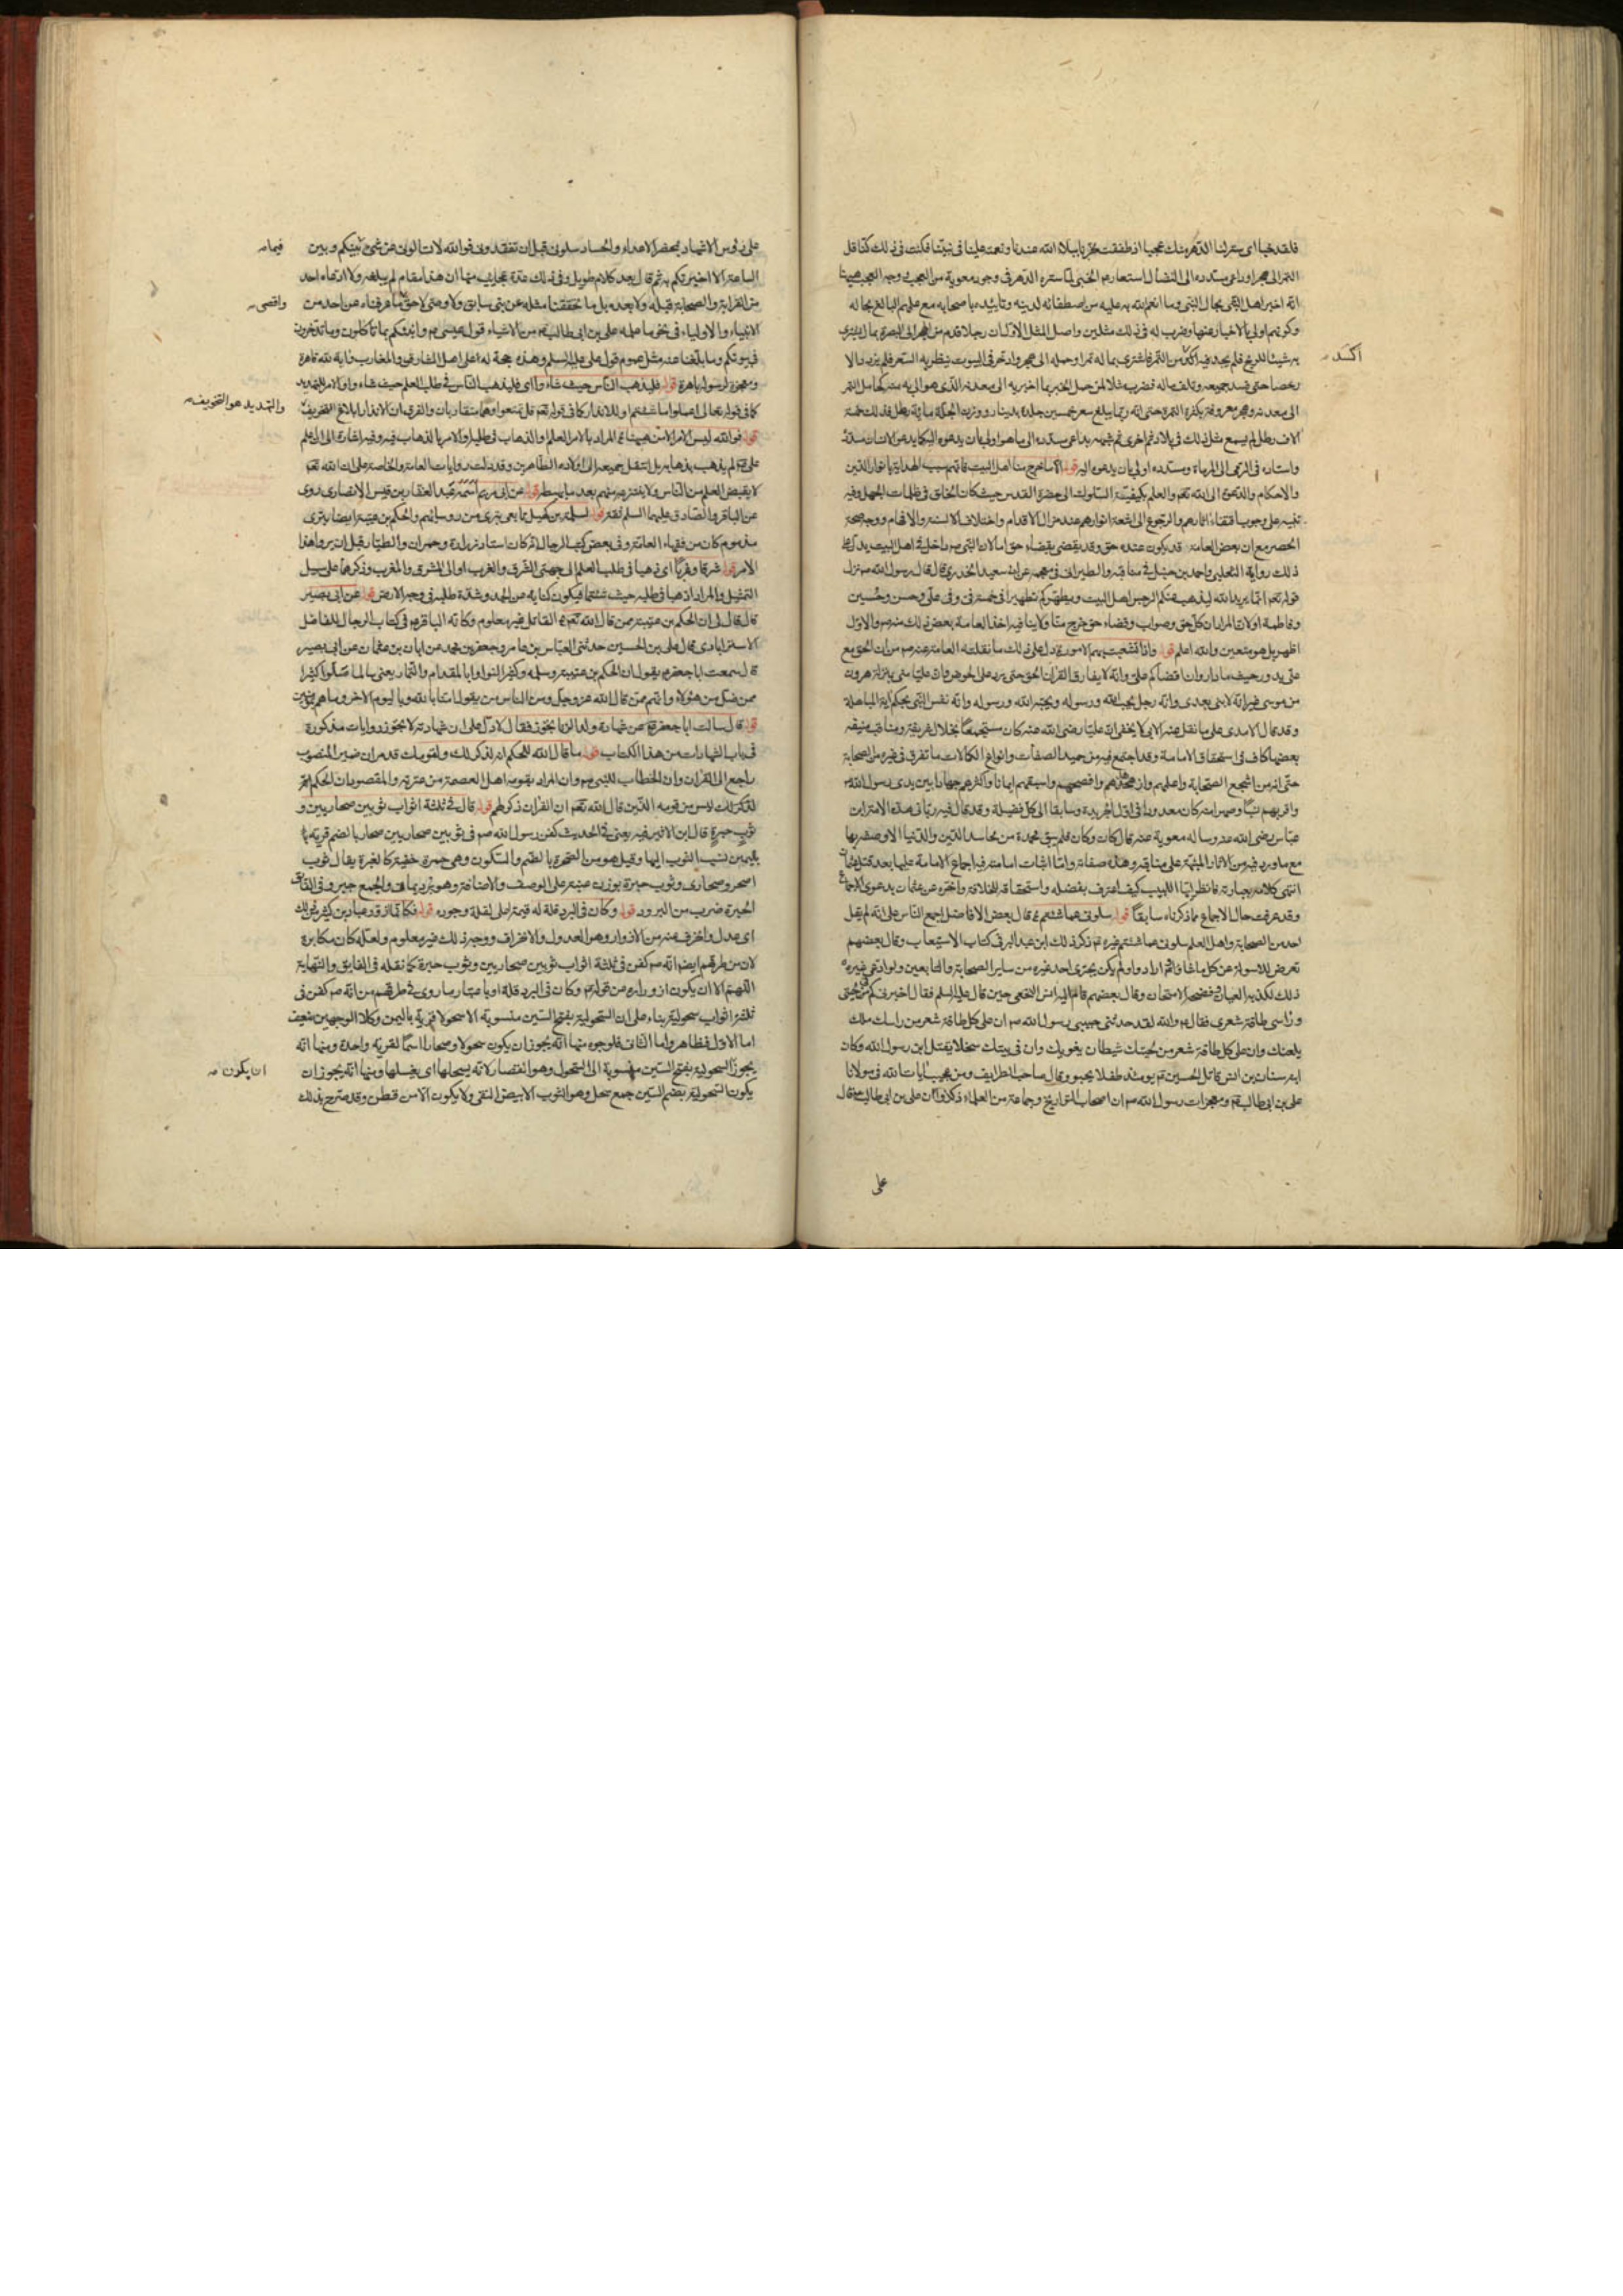 فلقد خبا اى ستر لنا الدهر منك عجبا اذ طفقت تخبرنا ببلاء الله عندنا ونعمته علينا فى نبينا فكنت فى ذلك كناقل
التمر الى هجر او داعى مسدده الى النضال استعار م الخبى لما ستره الدهر فى وجود معوية من العجب
انه اخبر اهل النبى بحال النبى وما انعم الله به عليه من اصطفائه لدينه وتاييده باصحابه مع علمهم البالغ بحاله
وكونهم اولى بالاخبار عنها وضرب له فى ذلك مثلين واصل المثل الاول ان رجلا قدم من هجر الى البصرة بمال اشترى
به شيئا للربح فلم يجد فيه اكسد من التمر فاشترى بماله تمرا وحمله الى هجر وادخر فى البيوت ينظر به السعر فلم يزدد الا
رخصا حتى فسد جميعه وتلف ماله فضرب مثلا لمن حمل الخبر بما اخبر به الى معدنه الذى هو اولى به منه كحامل التمر
الى معدنه وهجر معروفة بكثرة التمر حتى انه ربما يبلغ سعر خمسين جلة بدينار ووزن الجلة مائة رطل فذلك خمسة
الاف رطل لم يسمع مثل ذلك فى بلاد تمر اخرى ثم شبهه بداعى مسدده الى ما هو اولى بان يدعوه اليه كما يدعو الانسان مسدده
واستاده فى الرمى الى المرماة ومسدده اولى بان يدعوه اليه قوله الا ما خرج منا اهل البيت فانهم سبب الهداية بانوار الدين
والاحكام والدعوة الى الله تعم والعلم بكيفية السلوك الى حضرة القدس حيث كان الخلق فى ظلمات الجهل وفيه
تنبيه على وجوب اقتفاء اثارهم والرجوع الى اشعة انوارهم عند مزال الاقدام واختلاف الالسنة والافهام ووجه صحة
الحصر مع ان بعض العامة قد يكون عنده حق وقد يقضى بقضاء حق اما لان النبى ص داخل فى اهل البيت يدل على
ذلك رواية الثعلبى واحمد بن حنبل فى مناقبه والطبرانى فى معجمه عن ابى سعيد الخدرى قال قال رسول الله ص نزل
قوله تعم انما يريد الله ليذهب عنكم الرجس اهل البيت ويطهركم تطهيرا فى خمسة فى وفى على وحسن وحسين
وفاطمة او لان المراد ان كل حق وصواب وقضاء حق خرج منا ولا ينافيه اخذ العامة بعض ذلك منه ص والاول
اظهر بل هو متعين والله اعلم قوله واذا تشعبت بهم الامور دل على ذلك ما نقلته العامة عنه ص من ان الحق مع
على يدور حيث ما دار وان اقضاكم على وانه لا يفارق القران الحق حتى يرد على الحوض وان عليا منى بمنزلة هرون
من موسى غير انه لا نبى بعدى وانه رجل يحب الله ورسوله ويحبه الله ورسوله وانه نفس النبى بحكم اية المباهلة
وقد قال الامدى على ما نقل عنه الابى لا يخفى ان عليا رضى الله عنه كان مستجمعا لخلال شريفة ومناقب منيفة
بعضها كاف فى استحقاق الامامة وقد اجتمع فيه من حميد الصفات وانواع الكمالات ما تفرق فى غيره من الصحابة
حتى انه من اشجع الصحابة واعلمهم وازهدهم وافصحهم واسبقهم ايمانا واكثرهم جهادا بين يدى رسول الله ص
واقربهم نسبا وصهرا منه كان معدودا فى اول الجريدة وسابقا الى كل فضيلة وقد قال فيه ربانى هذه الامة ابن
عباس رضى الله عنه وساله معوية عنه فقال كان وكان فلم يبق محمدة من محامد الدين والدنيا الا وصفه بها
مع ما ورد فيه من الاثار المنبهة على مناقبه وهذه صفاته واما اثبات امامته فبه اجماع الامامة عليها بعد قتل عثمان
انتهى كلامه بعبارته فانظر ايها اللبيب كيف اعترف بفضله واستحقاقه للخلافة واخره عن عثمان بدعوى الاجماع
وقد عرفت حال الاجماع بما ذكرناه سابقا قوله سلونى عما شئتم قال بعض الافاضل اجمع الناس على انه لم يقل
احد من الصحابة واهل العلم سلونى عما شئتم غيره ثم ذكر ذلك ابن عبد البر فى كتاب الاستيعاب وقال بعضهم
تعرض للاسولة عن كل ما شاؤا ثم ارادوا ولم يكن يجترى احد غيره من ساير الصحابة والتابعين ولو ادعى غيره
ذلك لكذبه العيان وفضحه الامتحان وقال بعضهم قام اليه انس النخعى حين قال عليه السلم فقال اخبرنى كم فى لحيتى
وراسى طاقة شعرى فقال ع والله لقد حدثنى حبيبى رسول الله ص ان على كل طاقة شعر من راسك ملك
يلعنك وان على كل طاقة شعر من لحيتك شيطان يغويك وان فى بيتك سخلا يقتل ابن رسول الله وكان
ابنه سنان بن انس قاتل الحسين ع يومئذ طفلا يحبو وقال صاحب الطرايف ومن عجيب ايات الله فى مولانا
على بن ابى طالب ع ومعجزات رسول الله ص ان اصحاب التواريخ وجماعة من العلماء ذكروا ان على بن ابى طالب ع قال
اكسد
على
على رؤس الاشهاد بمحضر الاعداء والحساد سلونى قبل ان تفقدونى فو الله لا تسالونى عن شىء بينكم وبين
الساعة الا اخبرتكم به ثم قال بعد كلام طويل وفى ذلك عدة عجايب منها ان هذا مقام لم يبلغه ولا ادعاه احد
من القرابة والصحابة قبله ولا بعده بل ما تحققنا مثله عن نبى سابق ولا وصى لاحق ما عرفناه عن احد من
الانبياء والاولياء فى نحو ما علمه على بن ابى طالب ع من الاشياء قول عيسى ع وانبئكم بما تاكلون وما تدخرون
فى بيوتكم وما بلغنا عنه مثل عموم قول على عليه السلم وهذه حجة له على اهل المشارق والمغارب واية لله قاهرة
ومعجزة لرسوله باهرة قوله فليذهب الناس حيث شاءوا اى فليذهب الناس فى طلب العلم حيث شاءوا والامر للتهديد
كما فى قوله تعالى اعملوا ما شئتم وللانذار كما فى قوله تعم قل تمتعوا وهما متقاربان والفرق ان الانذار ابلاغ التخويف
قوله فو الله ليس الامر الا من هيهنا المراد بالامر العلم او الذهاب فى طلبه او الامر بالذهاب فيه وفيه اشارة الى ان علم
على ع لم يذهب بذهابه بل انتقل جميعه الى اولاده الطاهرين وقد دلت روايات العامة والخاصة على ان الله تعم
لا يقبض العلم من الناس ولا ينتزعه منهم بعد ما يبسطه قوله عن ابى مريم اسمه عبد الغفار بن قيس الانصارى روى
عن الباقر والصادق عليهما السلم ثقة قوله لسلمة بن كهيل تابعى بترى من روسائهم والحكم بن عتيبة ايضا بترى
مذموم كان من فقهاء العامة وفى بعض كتب الرجال انه كان استاد زرارة وحمران والطيار قبل ان يروا هذا
الامر قوله شرقا وغربا اى ذهبا فى طلب العلم الى جهتى الشرق والغرب او الى المشرق والمغرب وذكرهما على سبيل
التمثيل والمراد اذهبا فى طلبه حيث شئتما فيكون كناية عن الجد وشدة طلبه فى وجه الارض قوله عن ابى بصير
قال قال لى ان الحكم بن عتيبة ممن قال الله تعم القائل غير معلوم وكانه الباقر ع فى كتاب الرجال للفاضل
الاسترابادى قال على بن الحسين حدثنى العباس بن عامر وجعفر بن محمد عن ابان بن عثمان عن ابى بصير
قال سمعت ابا جعفر ع يقول ان الحكم بن عتيبة وسلمه وكثير النوا وابا المقدام والتمار يعنى سالما اضلوا كثيرا
ممن ضل من هؤلاء وانهم ممن قال الله عز وجل ومن الناس من يقول امنا بالله وباليوم الاخر وما هم بمؤمنين
قوله قال سالت ابا جعفر ع عن شهادة ولد الزنا تجوز فقال لا دل على ان شهادته لا تجوز وروايات مذكورة
فى باب الشهادات من هذا الكتاب قوله ما قال الله للحكم انه لذكر لك ولقومك قد مر ان ضمير المنصوب
راجع الى القران وان الخطاب للنبى ص وان المراد بقومه اهل العصمة من عترته والمقصود ان الحكم
لذلك ليس من قومه الذين قال الله تعم ان القران ذكر لهم قوله قال فى ثلثة اثواب ثوبين صحاريين و
ثوب حبرة قال ابن الاثير فيه يعنى فى الحديث كفن رسول الله ص فى ثوبين صحاريين صحار بالضم قرية
باليمن نسب الثوب اليها وقيل هو من الصحرة بالضم والسكون وهى حمرة خفية كالغبرة يقال ثوب
اصحر وصحارى وثوب حبرة بوزن عنبة على الوصف والاضافة وهو برد يمانى والجمع حبر وفى الفائق
الحبرة ضرب من البرود قوله وكان فى البرد قلة له قيمة اعلى لقلة وجوده قوله فكانما ازور عباد بن كثير من ذلك
اى عدل وانحرف عنه من الازورار وهو العدول والانحراف ووجه ذلك غير معلوم ولعله كان مكابرة
لان من طرقهم ايضم انه ص كفن فى ثلثة اثواب ثوبين صحاريين وثوب حبرة كما نقله فى الفايق والنهاية
اللهم الا ان يكون ازوراره من قوله ع وكان فى البرد قلة او باعتبار ما روى فى طرقهم من انه ص كفن فى
ثلثة اثواب سحولية بناء على ان السحولية بفتح السين منسوبة الا سحول قرية باليمن وكلا الوجهين ضعيف
اما الاول فظاهر واما الثانى فلوجوه منها انه يجوز ان يكون سحول وصحار اسما لقرية واحدة ومنها انه
يجوز السحولية بفتح السين منسوبة الى السحول وهو القصار لانه يسحلها اى يغسلها ومنها انه يجوز ان
يكون السحولية بضم السين جمع سحل وهو الثوب الابيض النقى ولا يكون الا من قطن وقد صرح بذلك
فيما
واقصى
والتهديد هو التخويف
ان يكون